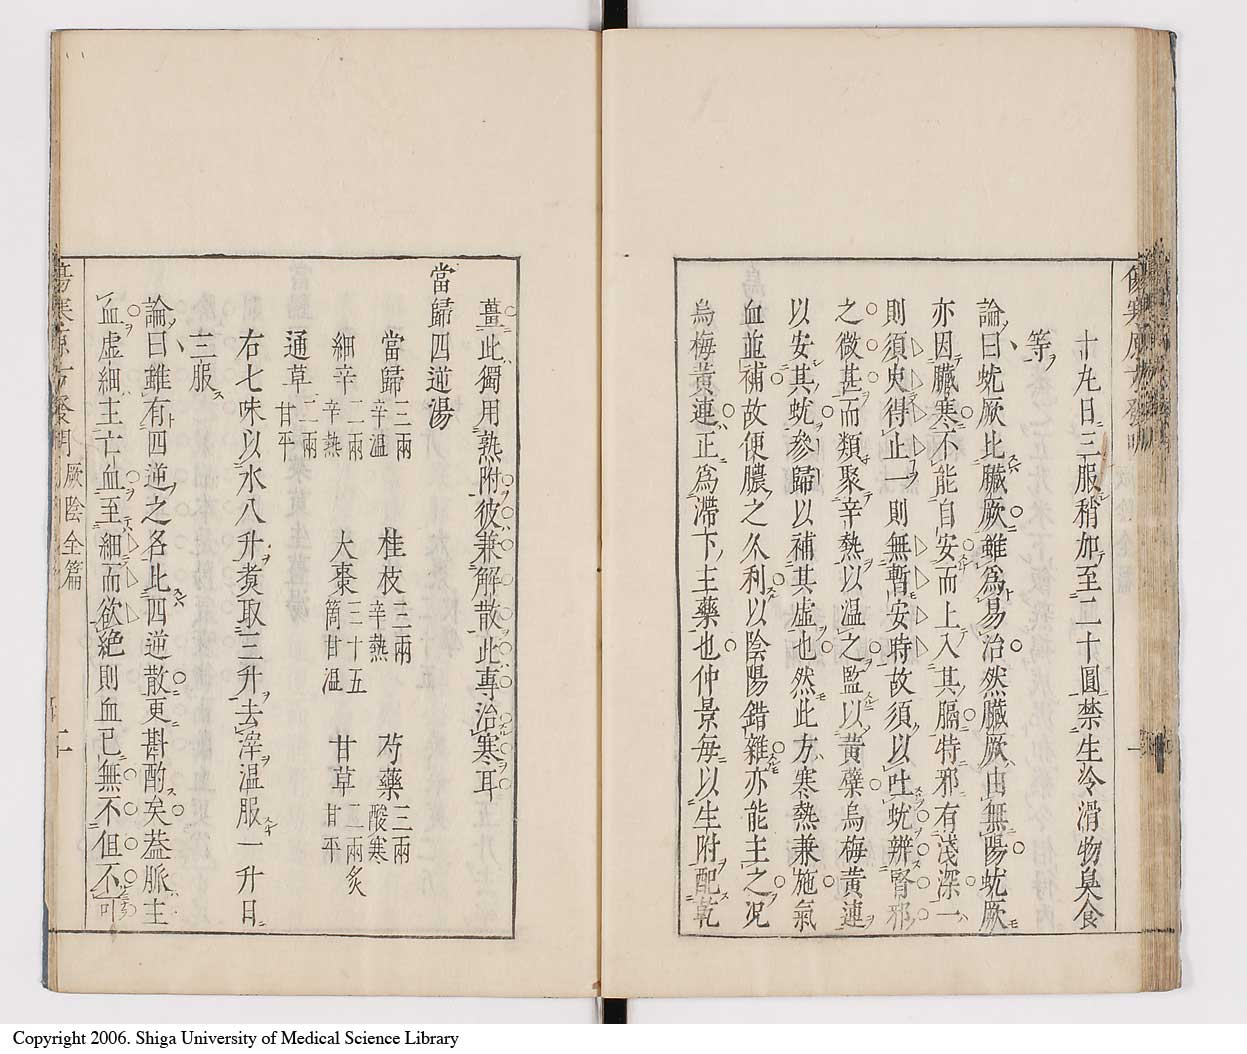 十丸日三服稍加至二十圓禁生冷滑物臭食
等
論曰蚘厥比臟厥雖為易治然臟厥由無陽蚘厥
亦因臟寒不能自安而上入其膈特邪有淺深一
則須臾得止一則無暫安時故須以吐蚘辨腎邪
之微甚而類聚辛熱以温之監以黃蘗烏梅黃連
以安其蚘參歸以補其虛也然此方寒熱兼施氣
血並補故便膿之久利以陰陽錯雜亦能主之况
烏梅黃連正為滯下主藥也仲景每以生附配乾
薑此獨用熟附彼兼解散此專治寒耳
當歸四逆湯
當歸三兩辛温 桂枝三兩辛熱 芍藥三兩酸寒
細辛二兩辛熱 大棗二十五箇甘温 甘草二兩炙甘平
通草二兩甘平
右七味以水八升煮取三升去滓温服一升日
三服
論曰雖有四逆之名此四逆散更斟酌矣蓋脈主
血虛細主亡血至細而欲絶則血已無不但不可
厥陰全篇
二十
Copyright 2006. Shiga University of Medical Science Library